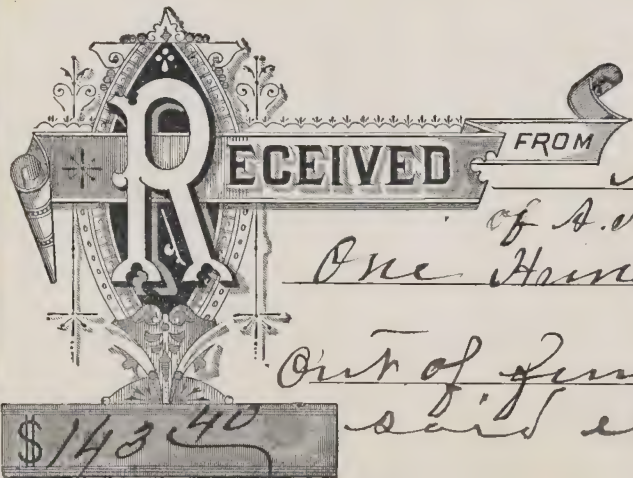 RECEIVED FROM
of A.
One Hun
Out of fun
said e
$143 40